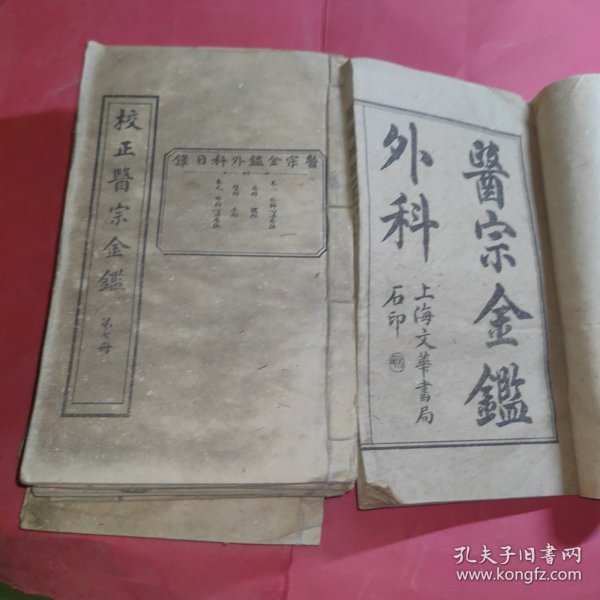 校正醫宗金鑑
第七冊
醫宗金鑑外科目錄
醫宗金鑑
外科
上海文華書局
石印
孔夫子旧书网
www.kongfz.com